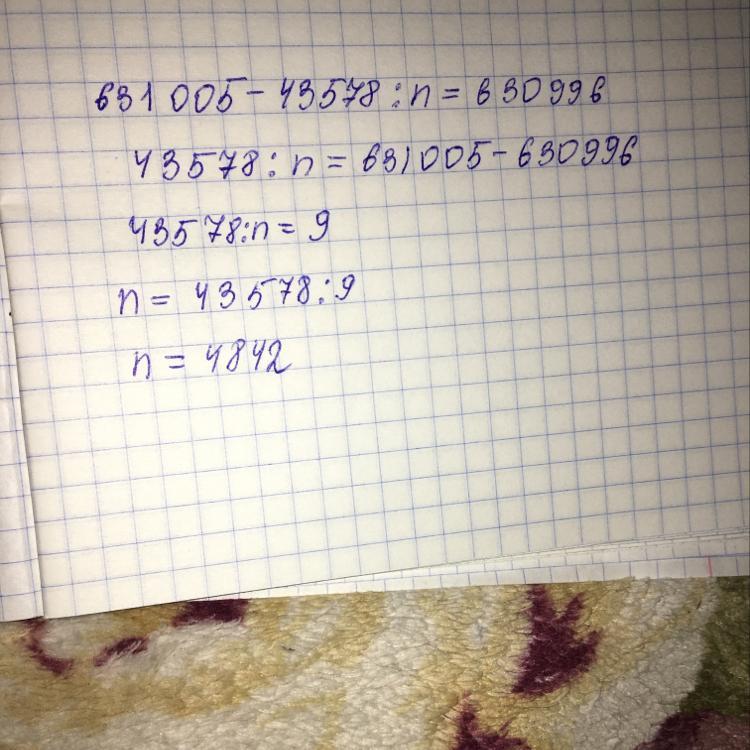 631 005 - 43578 : n = 630996
43578 : n = 631005 - 630996
43578 : n = 9
n = 43578 : 9
n = 4842